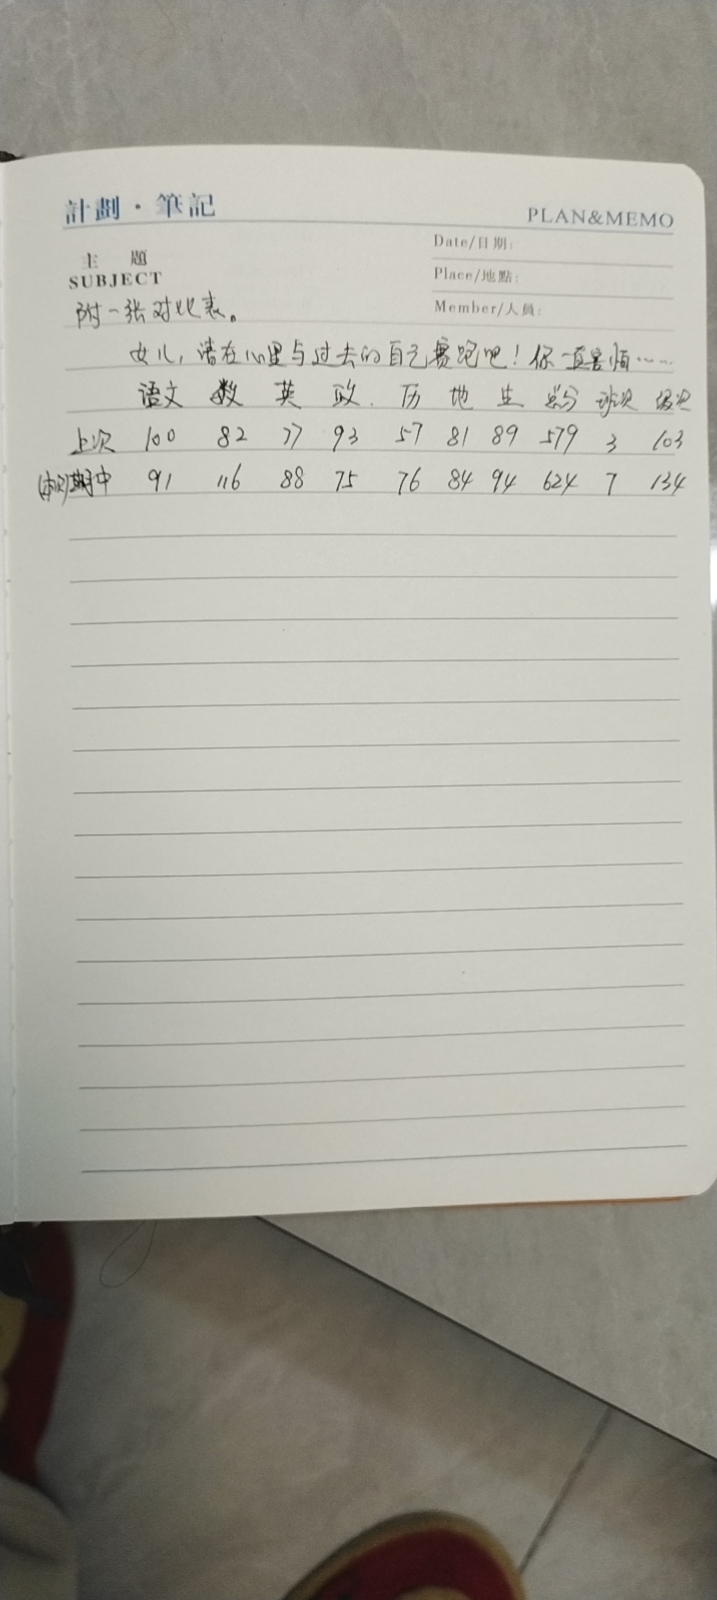 計劃·筆記 PLAN&MEMO
主 題 Date/日期:
SUBJECT Place/地點:
Member/人員:
附一张对比表。
女儿,请在心里与过去的自己赛跑吧!你一直害怕……
语文 数 英 政. 历 地 生 总分 班次 级次
上次 100 82 77 93 57 81 89 579 3 103
(本次)期中 91 116 88 75 76 84 94 624 7 134